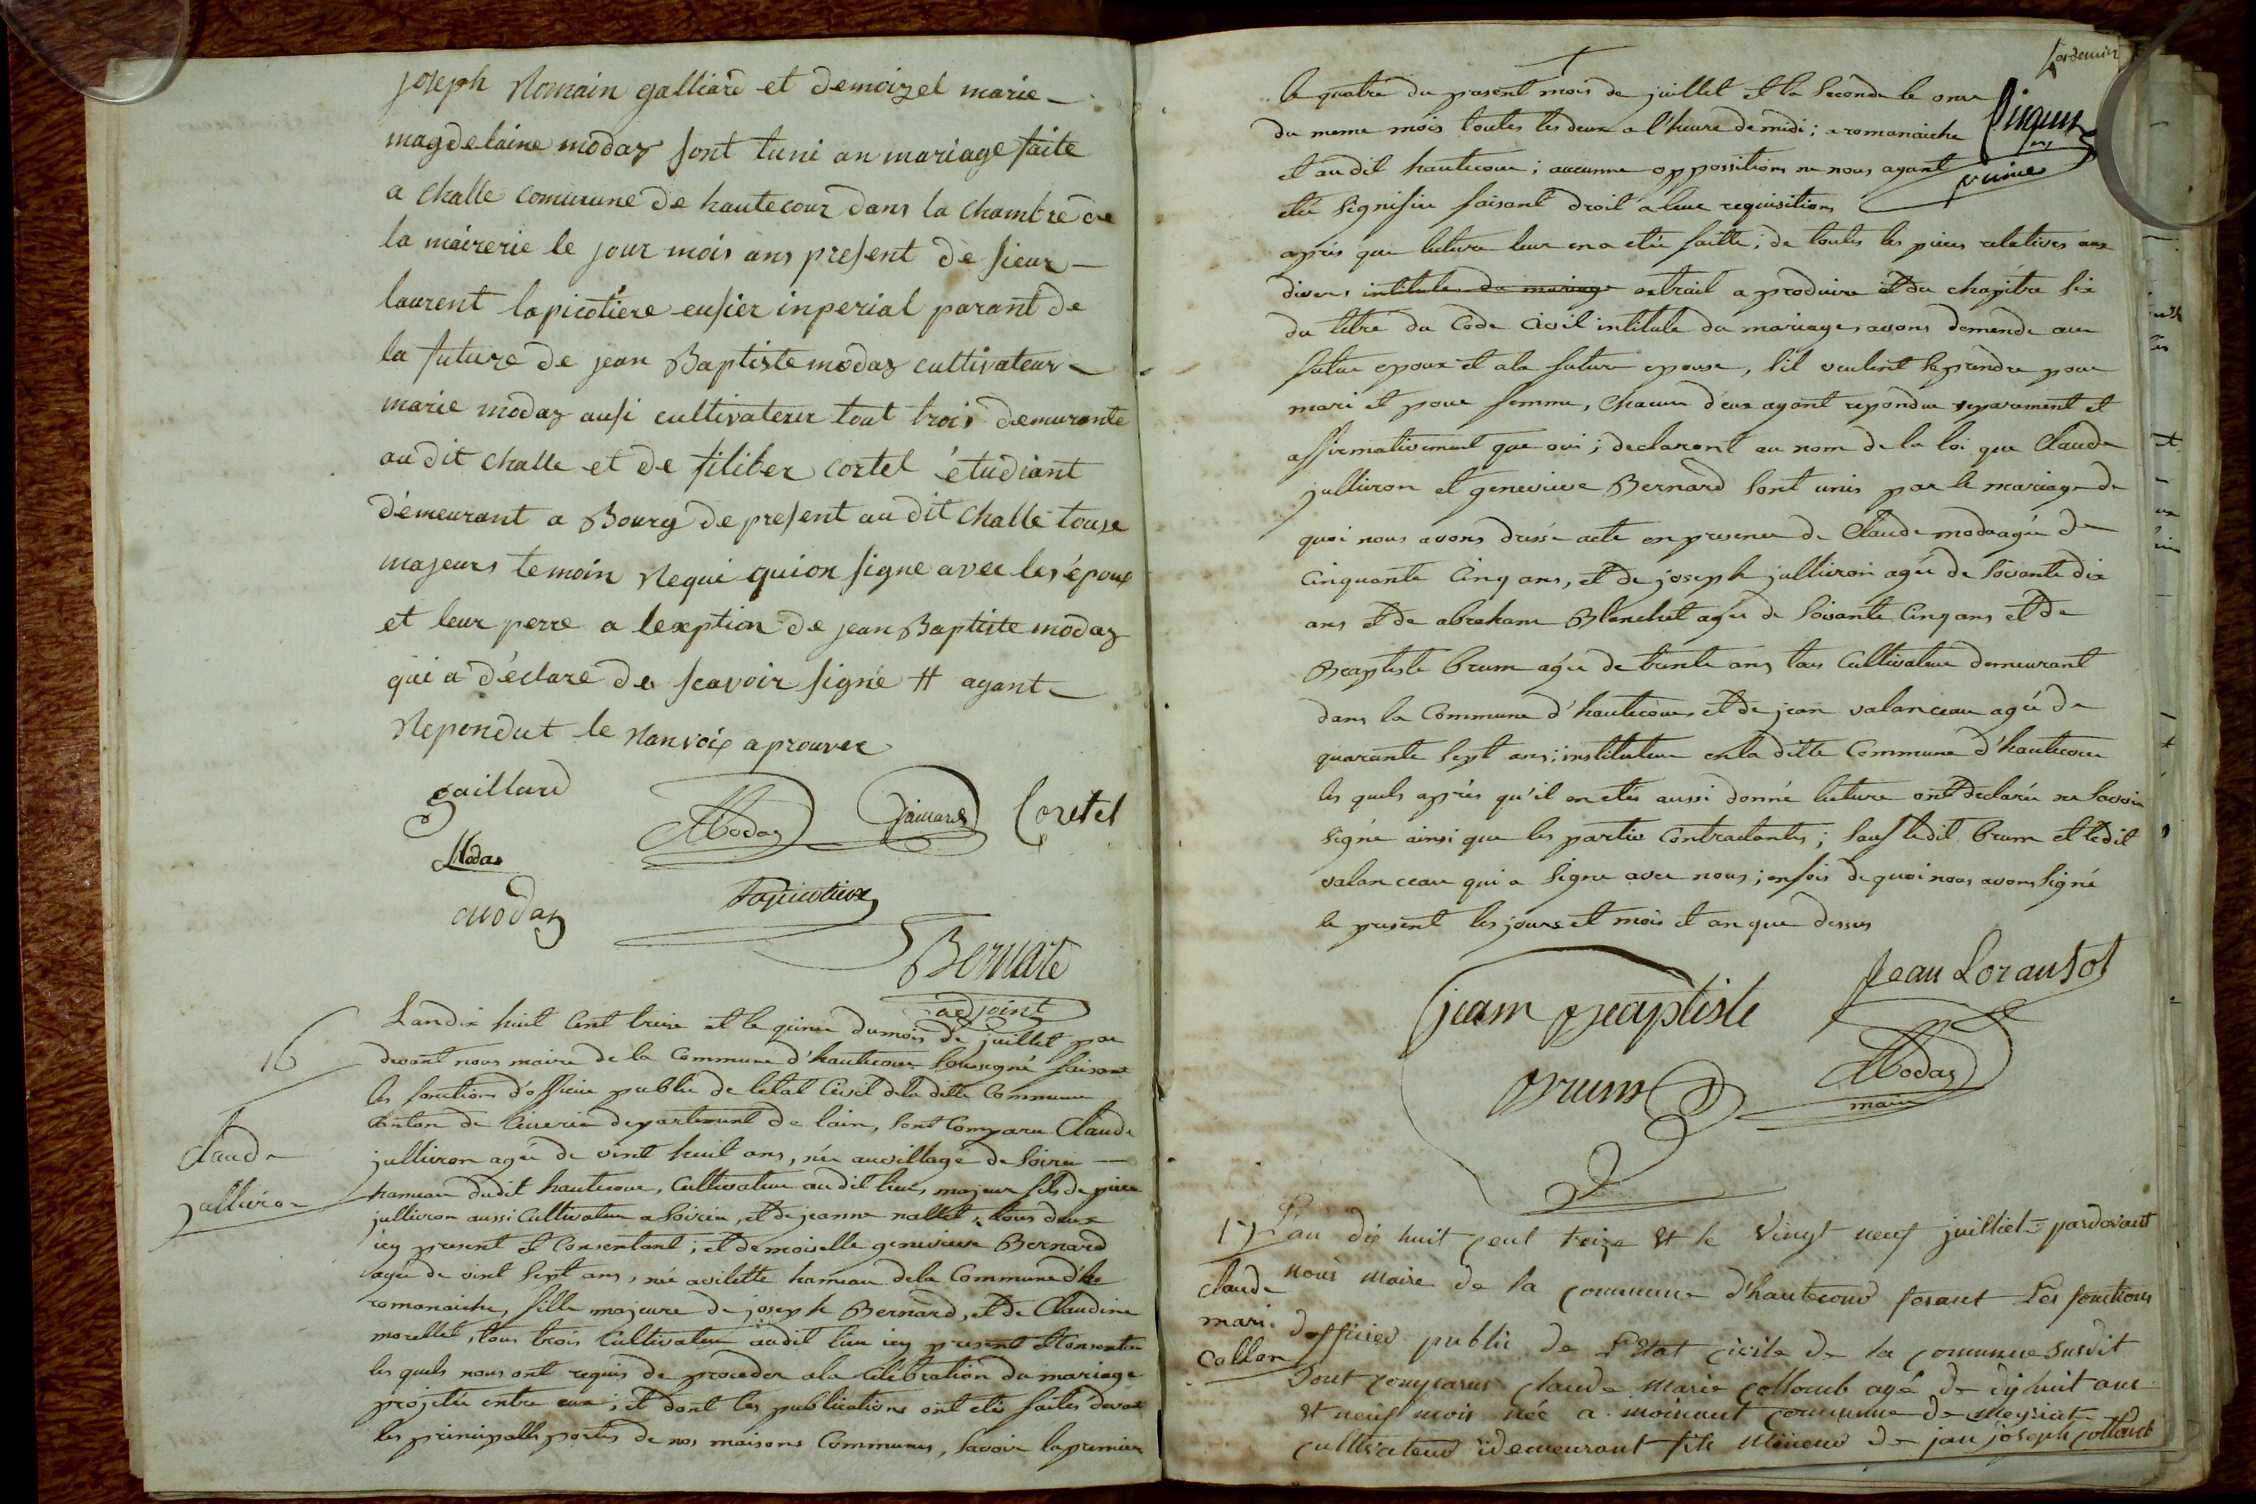 joseph Romain galliard et demoizel marie
magdelaine modaz sont tuni an mariage faite
a challe comunune de hautecour dans la chambre de
la mairerie le jour mois ans present de sieur
laurent lapicotiere eusier inperial parant de
la future de jean Baptiste modaz cultivateur
marie modaz ausi cultivaterer tout trois demurante
au dit challe et de filiber cortel étudiant
démeurant a Bourg de present au dit challe touse
majeurs temoin Requi quion signe avec les époux
et leur perre a lexption de jean Baptiste modaz
qui a déclare de scavoir signé # ayant
Repondut le Ranvoix aprouver
gaillard
Modas
Gaillard
Cortel
Modas
modaz
Lapicotiere
Bernard
adjoint
16
Claude
jullieron
Lan dix huit Cent treise et le quinse du mois de juillet par
devant nous maire de la Commune d'hautecour Sousigné faisant
les fonctions d'officier public de letat Civil de la ditte Commune
Canton de Ceiseria departement de lain, sont Comparu Claude
jullieron agée de vint huit ans, née au village de Soiria
hameau dudit hautecour, Cultivateur au dit lieu, majeur fils de piere
jullieron aussi Cultivateur a Soiria, et de jeanne nallet, tous deux
icy present et Consentant; et demoiselle genevieve Bernard
agée de vint Sept ans, née a vilette hameau de la Commune d'ho
romanaiche, fille majeure de joseph Bernard, et de Claudine
morellet, tous trois Cultivateur audit lieu icy present et Consentu
les quels nous ont requis de proceder a la Célébration du mariage
projetée entre eux; et dont les publications ont etée faites devant
les principalles portes de nos maisons Communes, Savoir la premier
le quatre du present mois de juillet et la Seconde le onse
du meme mois toutes les deux a l'heure de midi; a romanaiche
et au dit hautecour; aucunne oppositions ne nous ayant
etée Signifiée faisant droit a leur requisitions
après que lecture leur en a etée faitte; de toutes les pieces relatives aux
divers intitulés du mariage extrait a produire et du chapitre Six
du titre du Code Civil intitule du mariages avons demendé au
futur epoux et a la future epouse, s'il veulent se prendre pour
mari et pour femme, Chacun d'eux ayant repondu separament et
affirmativement que oui; declaront au nom de la loi que Claude
jullieron et genevieve Bernard Sont unis par le mariage de
quoi nous avons dressé acte en presence de Claude modas agée de
Cinquante Cinq ans, et de joseph jullieron agée de Soixante dix
ans et de abraham Blanchet agée de Soixante Cinq ans et de
Baaptiste brum agée de trente ans tous Cultivateur demeurant
dans la Commune d'hautecour et de jean valanceau agée de
quarante Sept ans; instituteur en la ditte Commune d'hautecour
les quels après qu'il en etés aussi donné lecture ont declarée ne Savoir
Signé ainsi que les partis Contractantes; Sauf ledit brum et ledit
valanceau qui a Signe avec nous; en fois de quoi nous avons Signé
le present les jours et mois et an que dessus
jean Baaptiste
Brum
Jean Loransot
Modas
maire
17
claude
mari
Collon
L'an dix huit cent treize et le vingt neuf juilliet pardevant
nous Maire de la commune d'hautecour fesant Les fonctions
dofficier public de L'Etat civile de la commune susdit
Sont comparus claude marie colloub agé de dix huit ans
et neuf mois née a moinant commune de meyriat
cultivateur i demeurant fils Mineur de jan joseph colloub